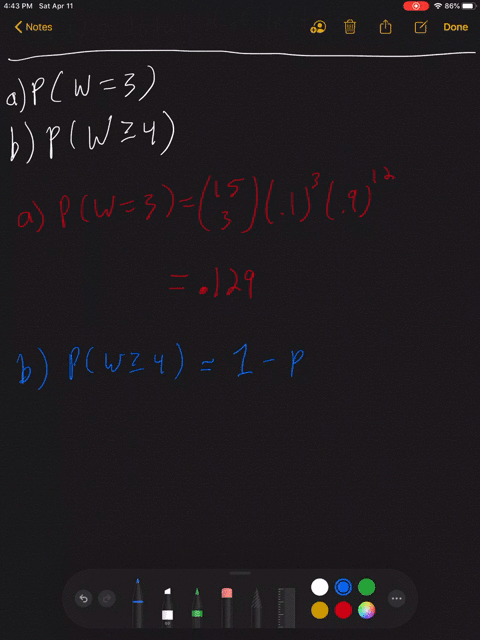 4:43 PM Sat Apr 11 86%
Notes Done
a) P(W=3)
b) P(W≥4)
a) P(W=3)=(15 3)(.1)^3(.9)^12
= .129
b) P(W≥4) = 1 - P